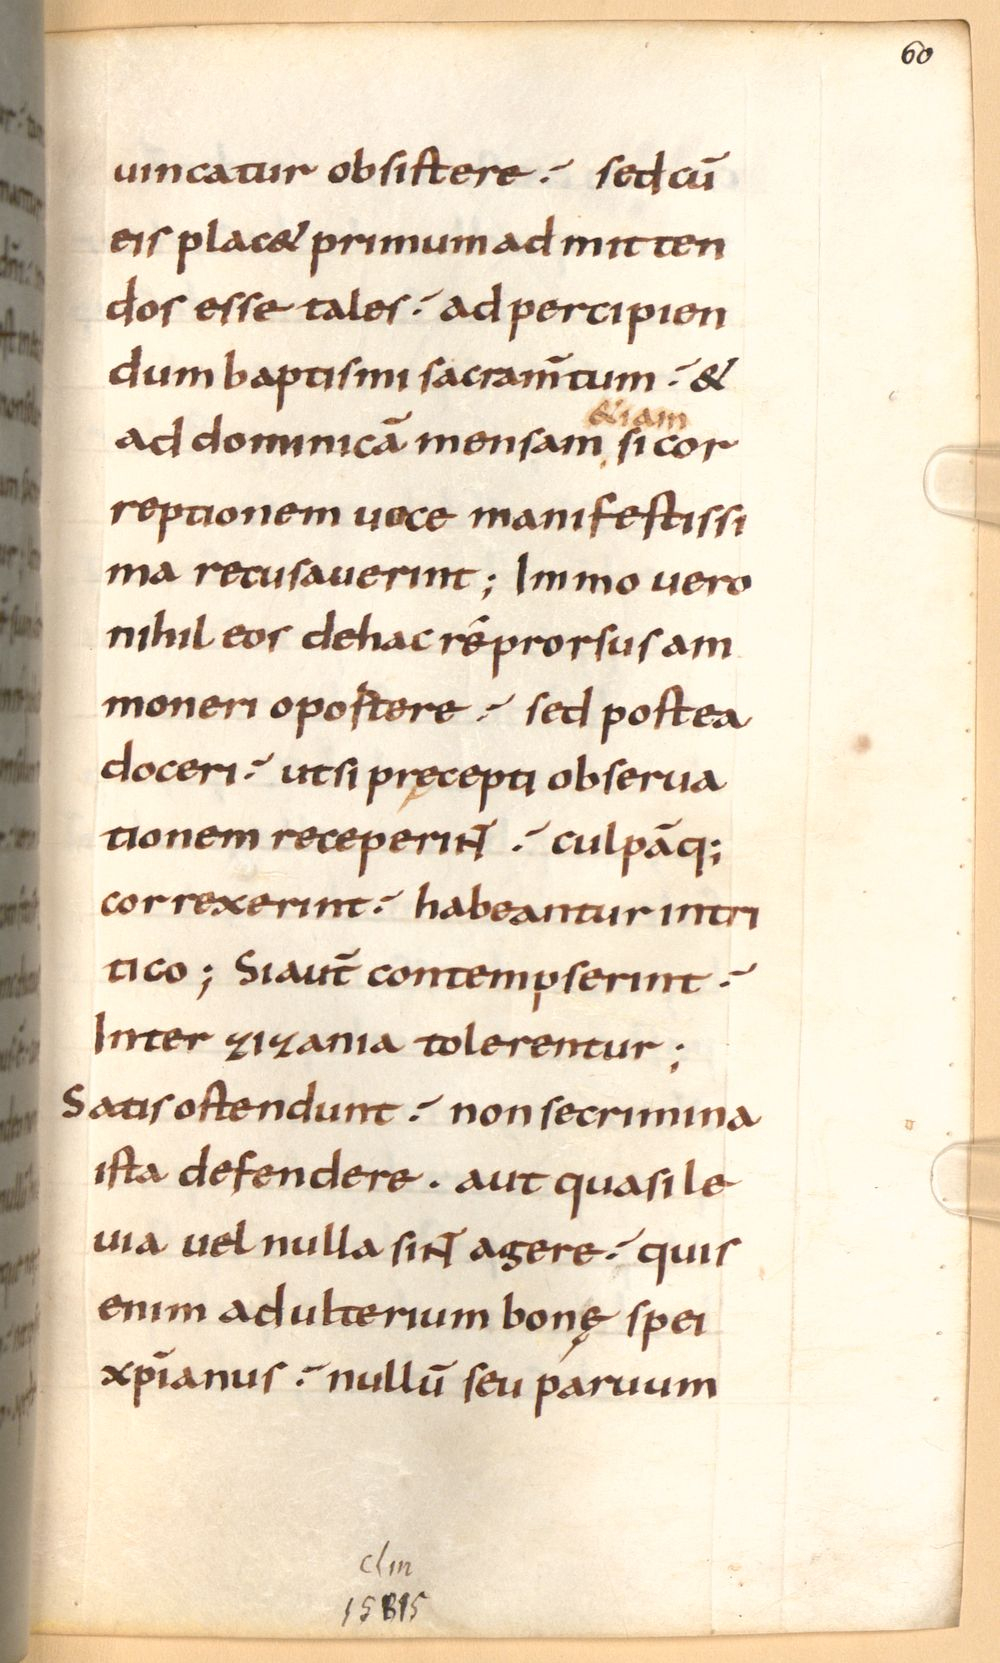 60
uincatur obsistere· sed cū
eis plac& primum admitten
dos esse tales· ad percipien
dum baptismi sacram̄tum· &
&iam
ad dominicā mensam, si cor
reptionem uoce manifestissi
ma recusauerint; Immo uero
nihil eos de hac ré prorsus am
moneri oportere· sed postea
doceri· ut si pręcepti obserua
tionem receperiNT· culpāq;
correxerint· habeantur in tri
tico; Si aut̄ contempserint·
Inter zizania tolerentur;
Satis ostendunt· non se crimina
ista defendere. aut quasi le
uia uel nulla siNT agere· quis
enim adulterium bonę spei
xp̄ianus· nullū seu paruum
clm
15815